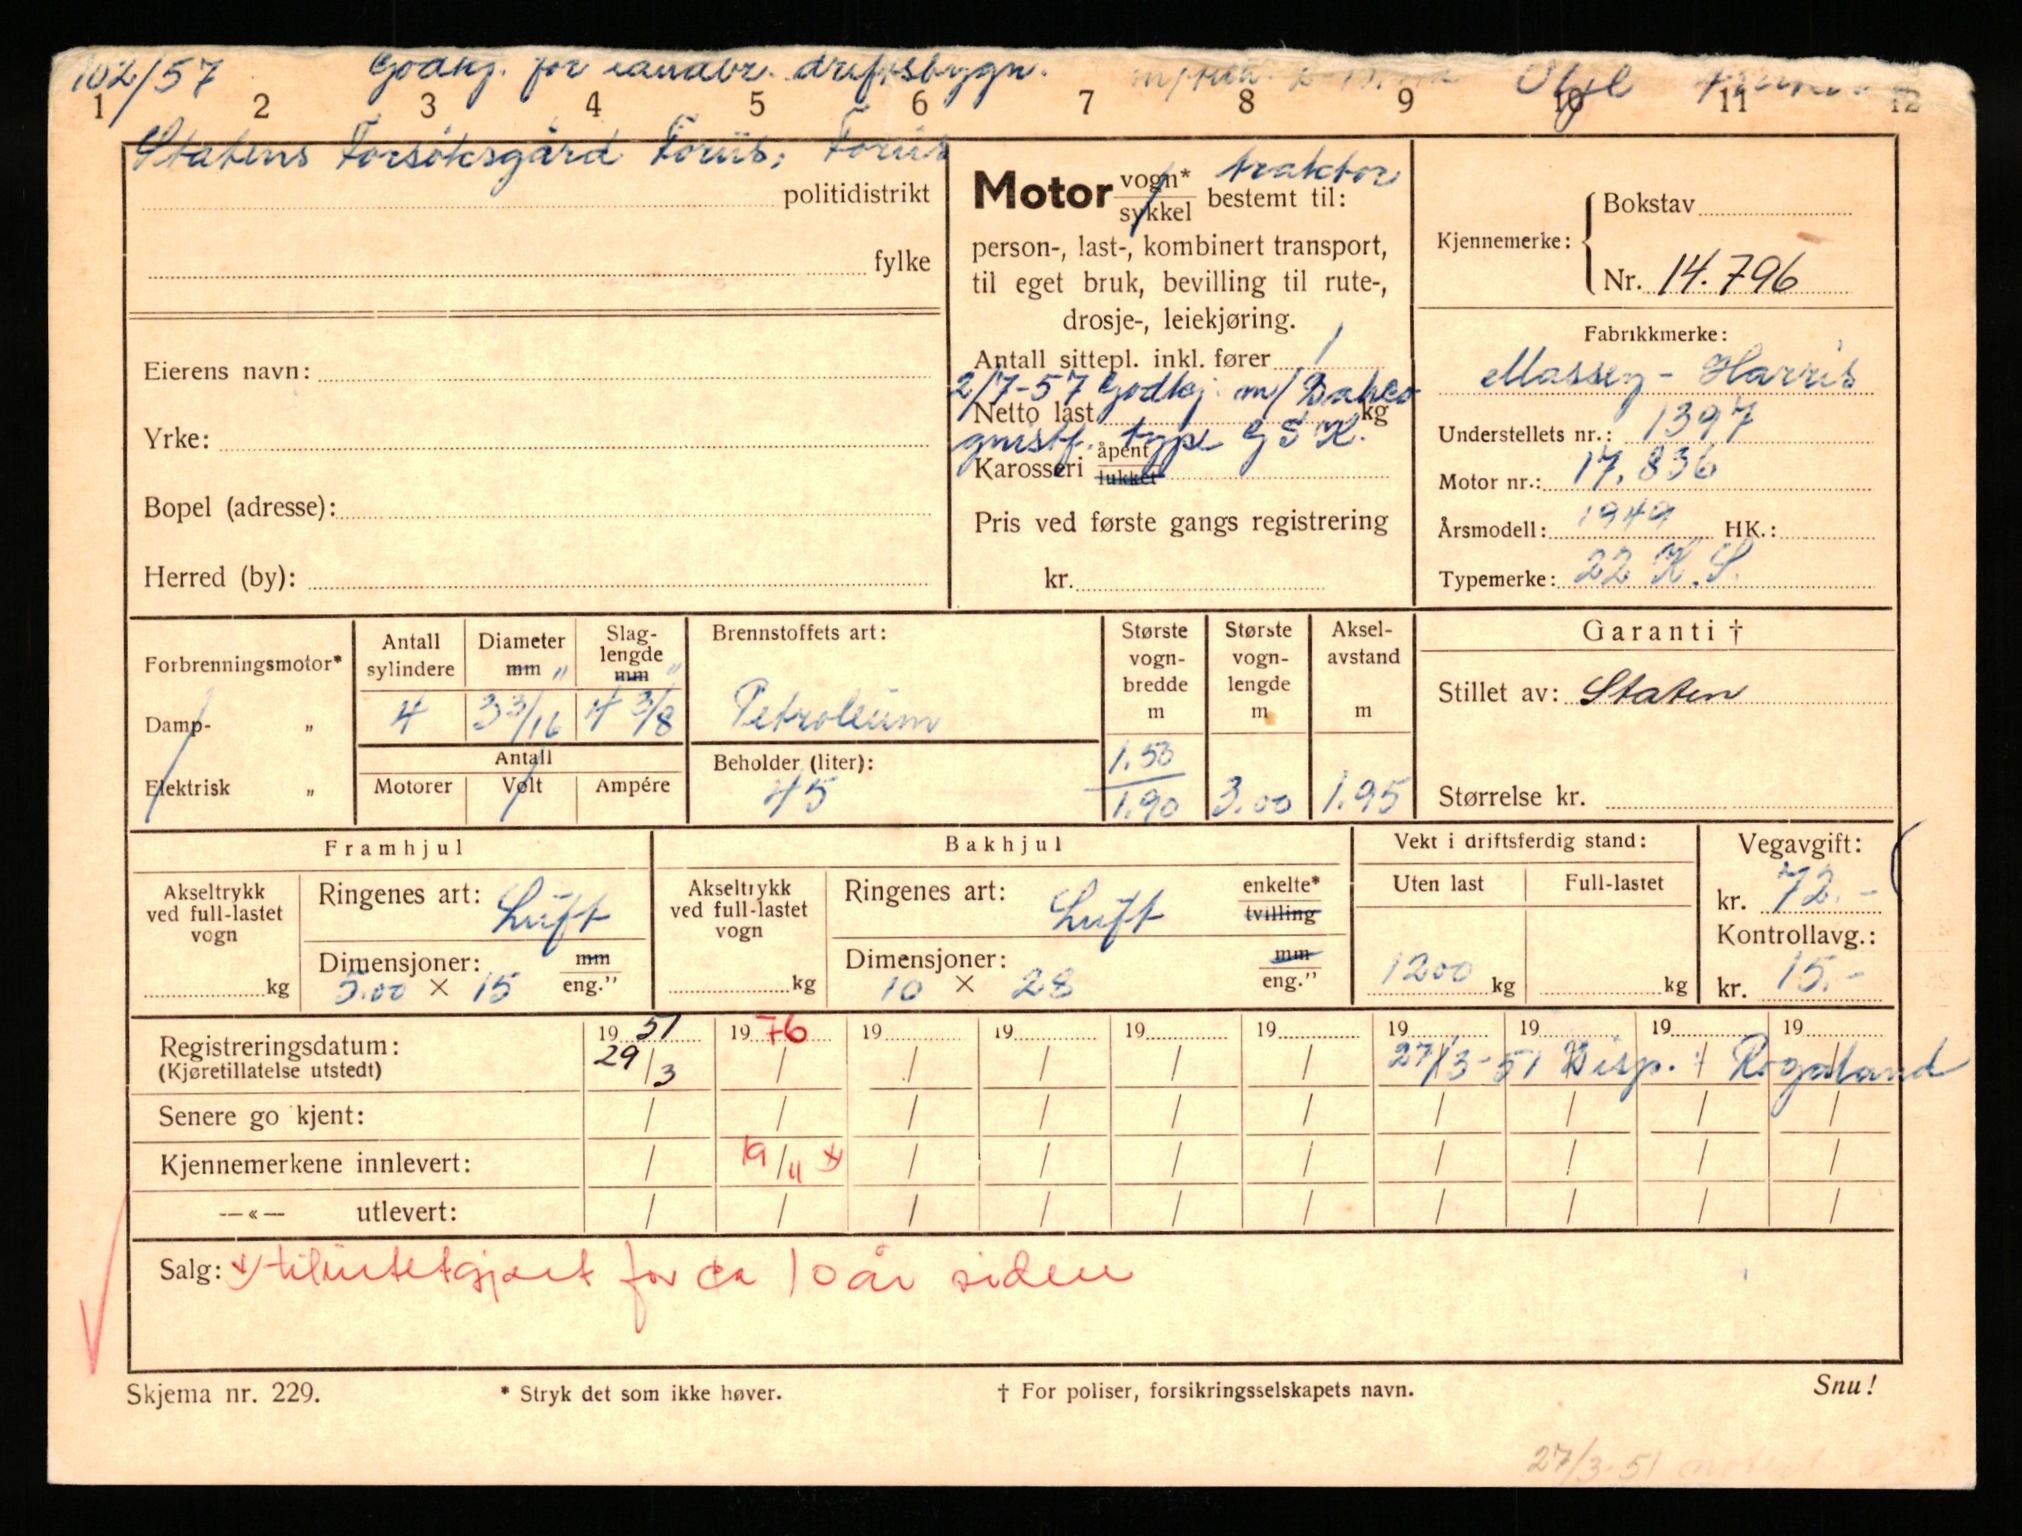 102/57 Godkj. for landbr. driftsbygn.
1 2 3 4 5 6 7 8 9 10 11 12
Statens Forsöksgård Forüs, Forüs
politidistrikt
fylke
Eierens navn:
Yrke:
Bopel (adresse):
Herred (by):
Motor vogn* / sykkel bestemt til: traktor
person-, last-, kombinert transport,
til eget bruk, bevilling til rute-,
drosje-, leiekjøring.
Antall sittepl. inkl. fører 1
2/7-57 Godkj. m/ Bahco
Netto last kg
gnistf. type GSK.
Karosseri åpent / lukket
Pris ved første gangs registrering
kr.
Kjennemerke: Bokstav
Nr. 14.796
Fabrikkmerke:
Massey-Harris
Understellets nr.: 1397
Motor nr.: 17.836
Årsmodell: 1949 HK.:
Typemerke: 22 K.S.
Forbrenningsmotor*
Damp- „
Elektrisk „
Antall sylindere
4
Diameter mm "
3 3/16
Slag-lengde mm "
4 3/8
Antall
Motorer Volt Ampére
Brennstoffets art:
Petroleum
Beholder (liter):
45
Største vogn-bredde m
1.50
1.90
Største vogn-lengde m
3.00
Aksel-avstand m
1.95
Garanti †
Stillet av: Staten
Størrelse kr.
Framhjul
Akseltrykk ved full-lastet vogn
kg
Ringenes art: Luft
Dimensjoner: mm
5.00 × 15 eng."
Bakhjul
Akseltrykk ved full-lastet vogn
kg
Ringenes art: Luft enkelte* / tvilling
Dimensjoner: mm
10 × 28 eng."
Vekt i driftsferdig stand:
Uten last Full-lastet
1200 kg kg
Vegavgift:
kr. 72.-
Kontrollavg.:
kr. 15.-
Registreringsdatum: 1951 1976 19 19 19 19 19 19 19 19
(Kjøretillatelse utstedt) 29/3 / / / / / 27/3-51 Disp.: Rogaland
Senere go kjent: / / / / / / / / / /
Kjennemerkene innlevert: / 19/11 x) / / / / / / / /
—«— utlevert: / / / / / / / / / /
Salg: x) tilintetgjort for ca 10 år siden
Skjema nr. 229. * Stryk det som ikke høver. † For poliser, forsikringsselskapets navn. Snu!
27/3-51